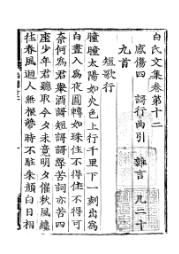 白氏文集卷第十二
感傷四 謌行曲引 雜言 凡二十
九首
短歌行
曈曈太陽如火色上行千里下一刻出為
白晝入為夜圓轉如珠住不得住不得可
奈何為君舉酒謌短謌謌聲苦詞亦苦四
座少年君聽取今夕未竟明夕催秋風纔
往春風迴人無根蔕時不駐朱顏白日相